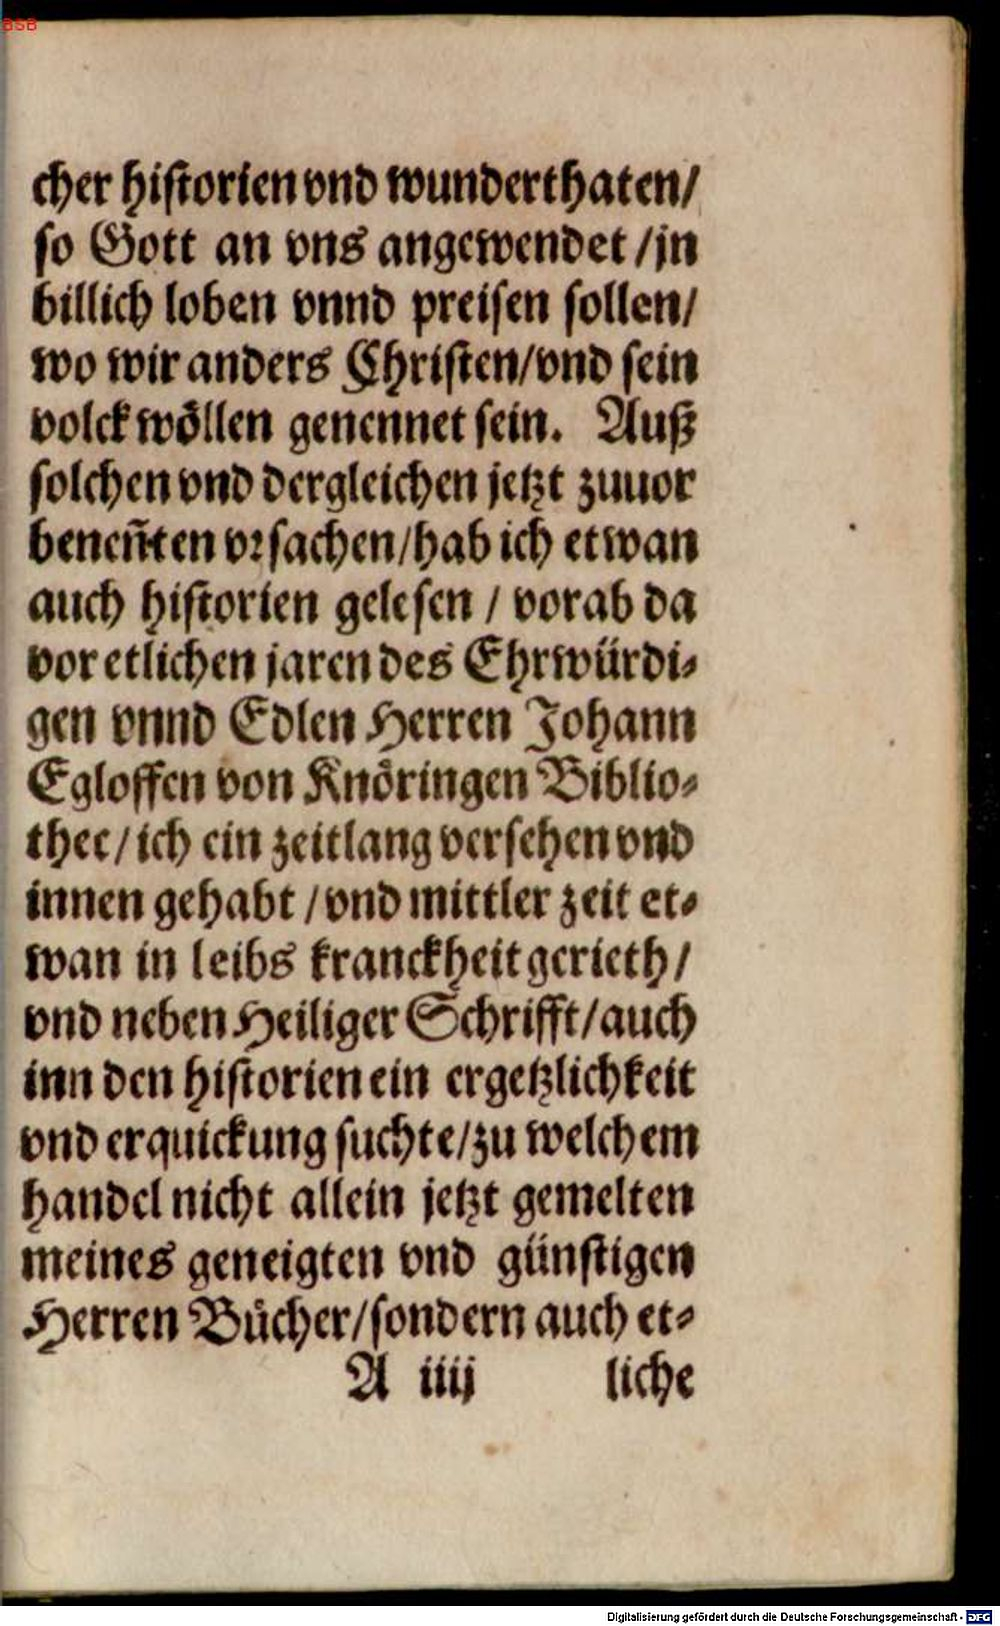 BSB
cher historien vnd wunderthaten/
so Gott an vns angewendet /jn
billich loben vnnd preisen sollen/
wo wir anders Christen/vnd sein
volck wöllen genennet sein. Auß
solchen vnd dergleichen jetzt zuuor
beneñten vrsachen/hab ich etwan
auch historien gelesen / vorab da
vor etlichen jaren des Ehrwürdi-
gen vnnd Edlen Herren Johann
Egloffen von Knöringen Biblio-
thec/ich ein zeitlang versehen vnd
innen gehabt /vnd mittler zeit et-
wan in leibs kranckheit gerieth/
vnd neben Heiliger Schrifft/auch
inn den historien ein ergetzlichkeit
vnd erquickung suchte/zu welchem
handel nicht allein jetzt gemelten
meines geneigten vnd günstigen
Herren Bücher/sondern auch et-
A iiij liche
Digitalisierung gefördert durch die Deutsche Forschungsgemeinschaft - DFG